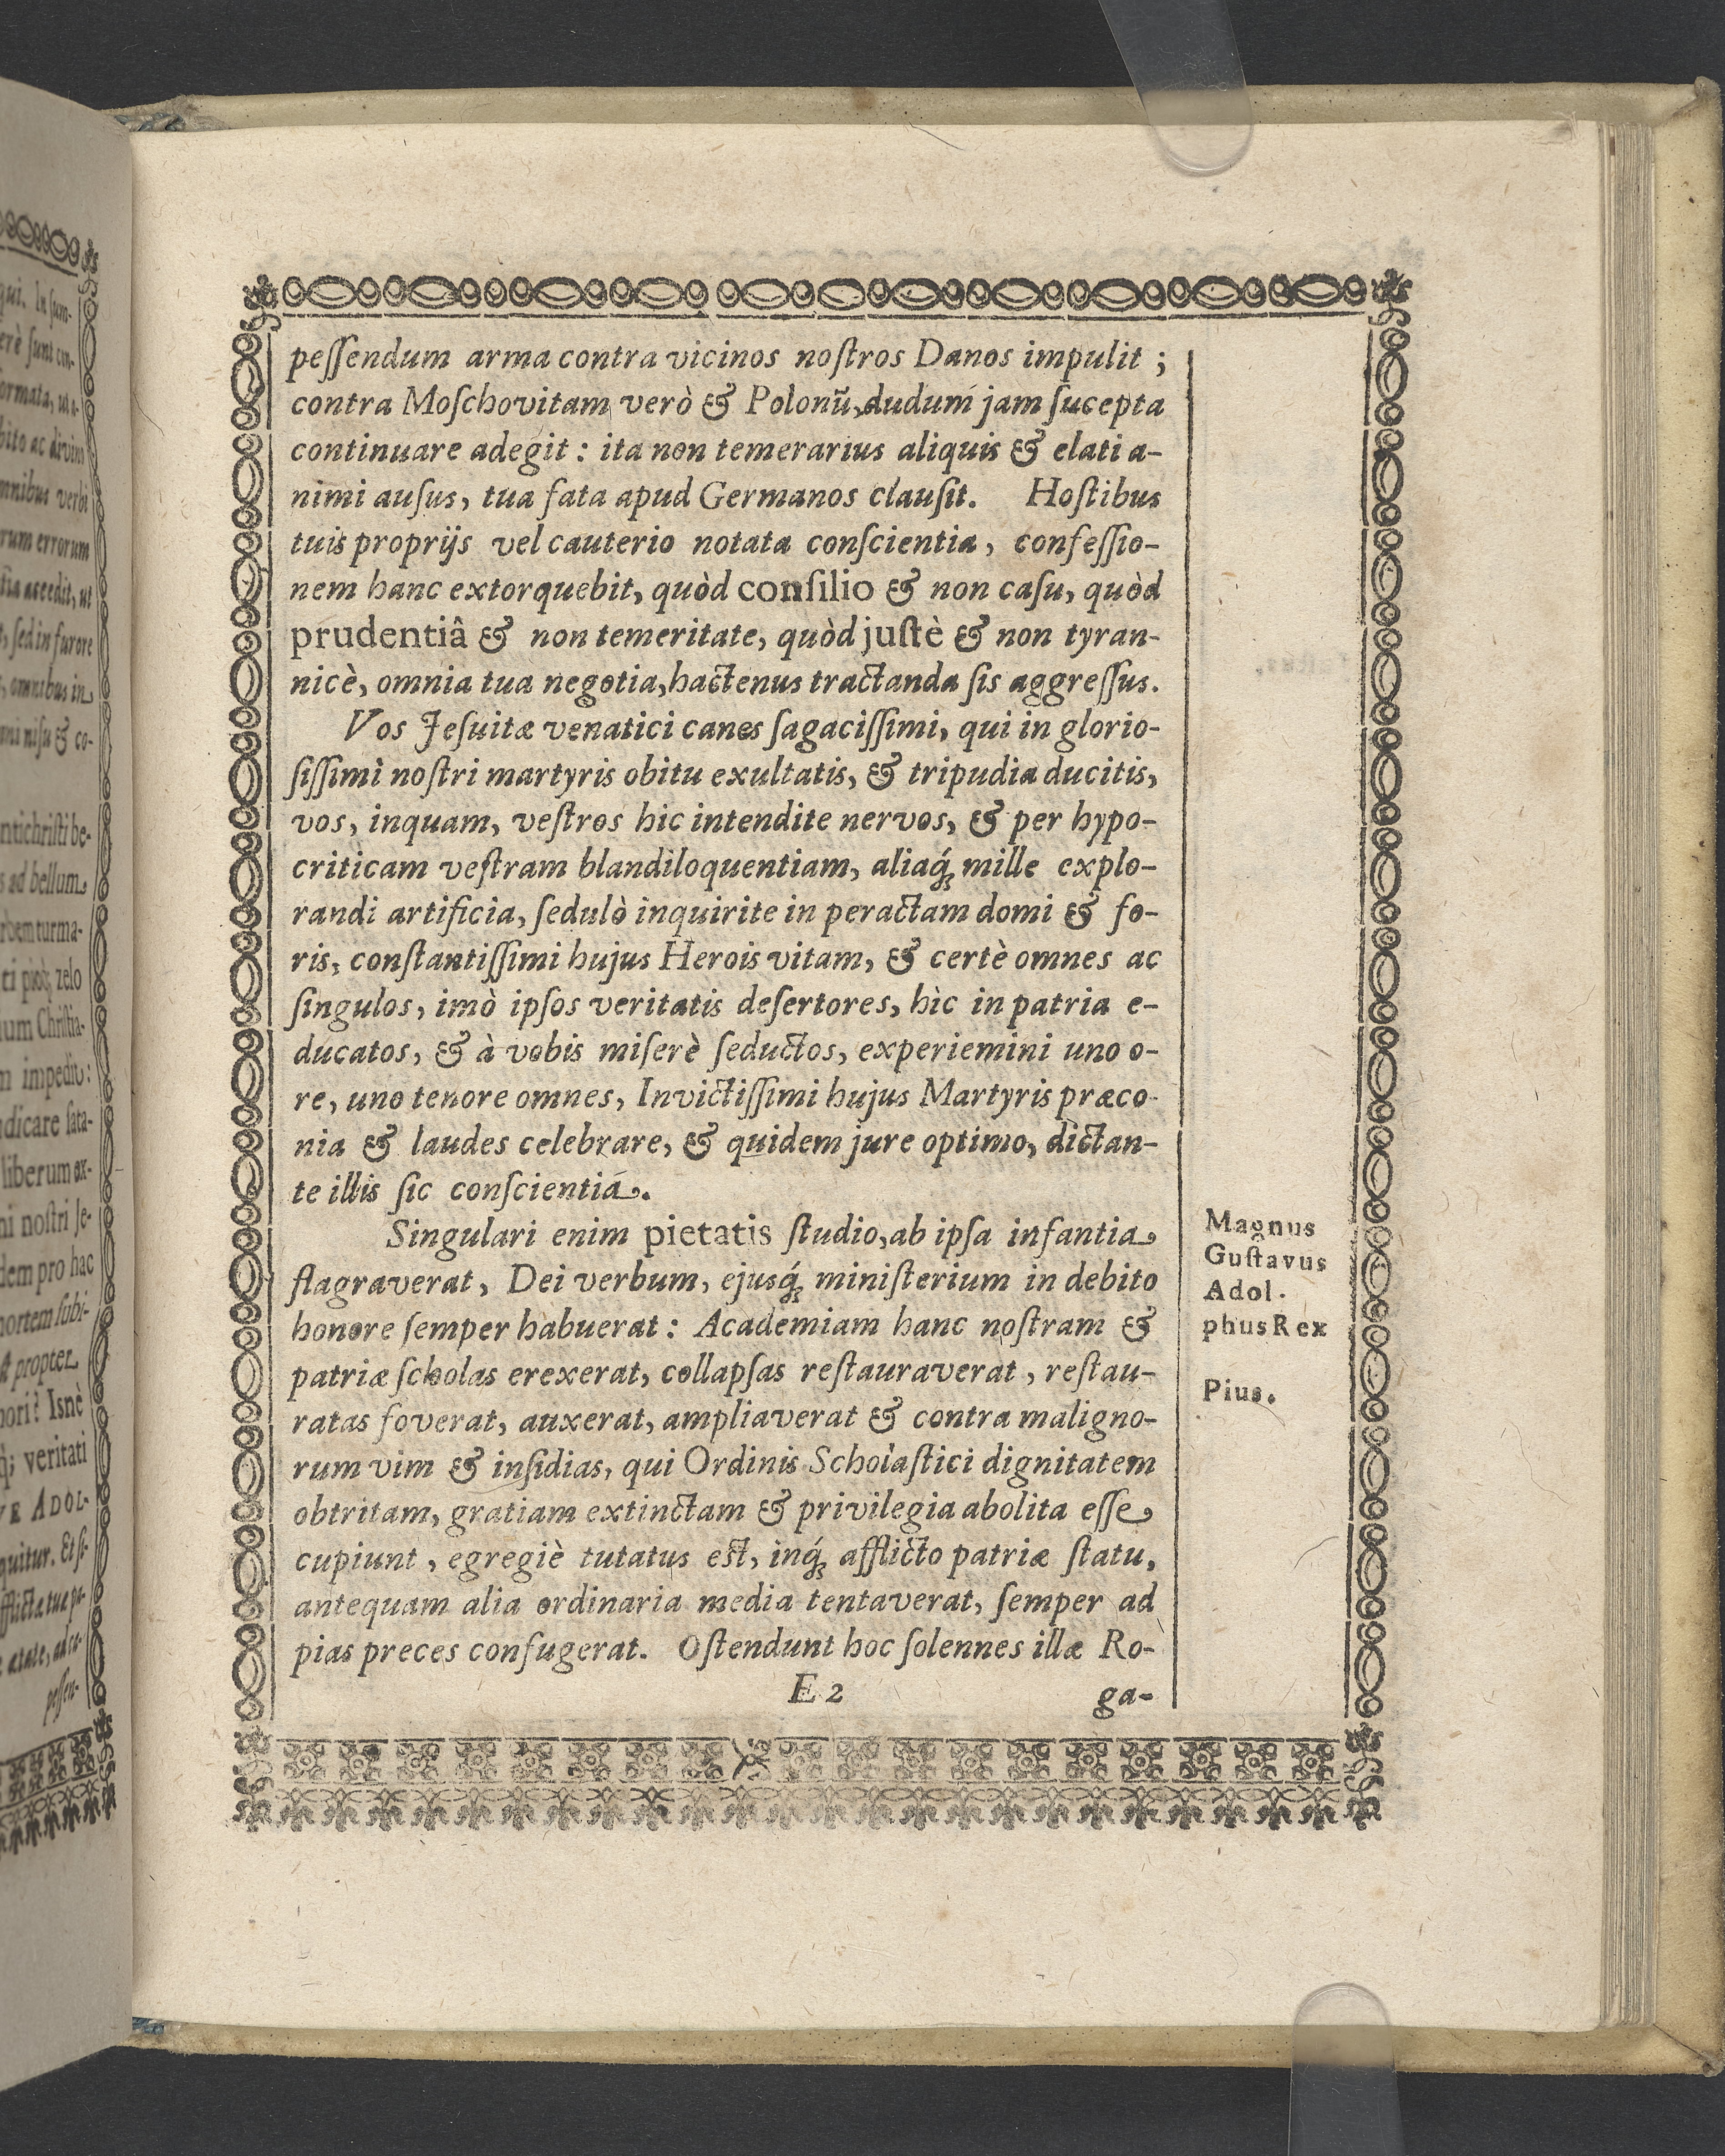 peſſendum arma contra vicinos noſtros Danos impulit ;
contra Moſchovitam verò & Polonũ, dudum jam ſucepta
continuare adegit : ita non temerarius aliquis & elati a-
nimi auſus, tua fata apud Germanos clauſit. Hoſtibus
tuis proprijs vel cauterio notata conſcientia, confeſſio-
nem hanc extorquebit, quòd conſilio & non caſu, quòd
prudentiâ & non temeritate, quòd juſtè & non tyran-
nicè, omnia tua negotia, hactenus tractanda ſis aggreſſus.
Vos Jeſuitæ venatici canes ſagaciſſimi, qui in glorio-
ſiſſimi noſtri martyris obitu exultatis, & tripudia ducitis,
vos, inquam, veſtros hic intendite nervos, & per hypo-
criticam veſtram blandiloquentiam, aliaq́ꝫ mille explo-
randi artificia, ſedulò inquirite in peractam domi & fo-
ris, conſtantiſſimi hujus Herois vitam, & certè omnes ac
ſingulos, imò ipſos veritatis deſertores, hìc in patria e-
ducatos, & à vobis miſerè ſeductos, experiemini uno o-
re, uno tenore omnes, Invictiſſimi hujus Martyris præco-
nia & laudes celebrare, & quidem jure optimo, dictan-
te illis ſic conſcientiá.
Singulari enim pietatis ſtudio, ab ipſa infantia
flagraverat, Dei verbum, ejusq́ꝫ miniſterium in debito
honore ſemper habuerat : Academiam hanc noſtram &
patriæ ſcholas erexerat, collapſas reſtauraverat, reſtau-
ratas foverat, auxerat, ampliaverat & contra maligno-
rum vim & inſidias, qui Ordinis Scholaſtici dignitatem
obtritam, gratiam extinctam & privilegia abolita eſſe
cupiunt, egregiè tutatus eſt, inq́ꝫ afflicto patriæ ſtatu,
antequam alia ordinaria media tentaverat, ſemper ad
pias preces confugerat. Oſtendunt hoc ſolennes illæ Ro-
E 2 ga-
Magnus
Guſtavus
Adol-
phus Rex
Pius.